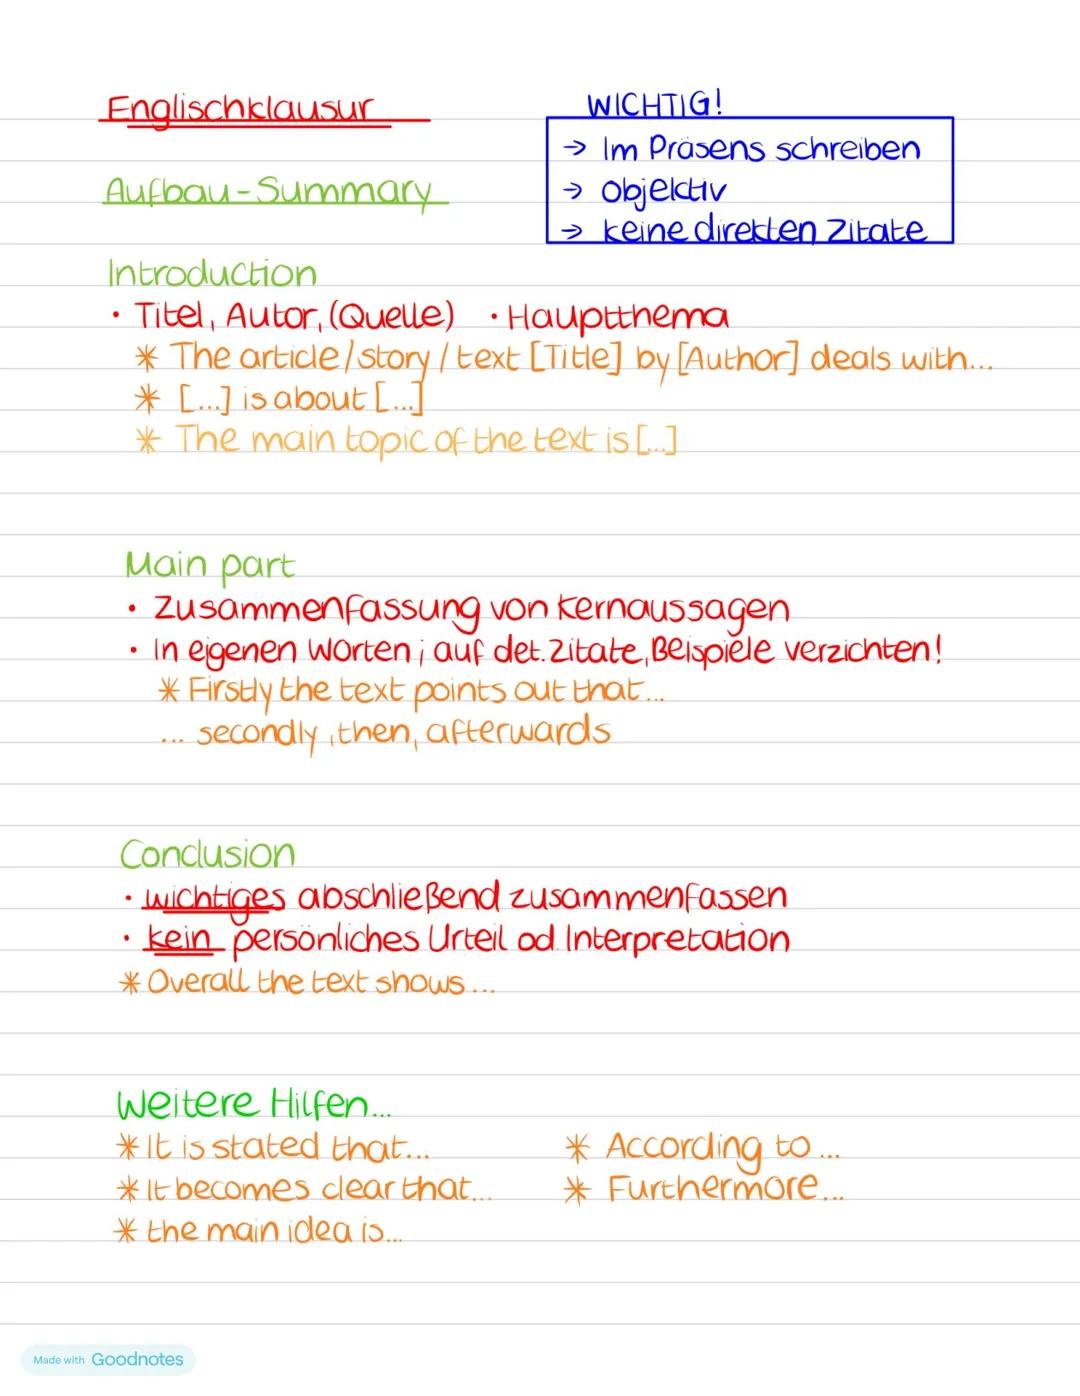 Englischklausur
WICHTIG!
→ Im Präsens schreiben
Aufbau-Summary
→ objektiv
→ keine direkten Zitate
Introduction
• Titel, Autor, (Quelle) • Hauptthema
* The article/story/text [Title] by [Author] deals with...
* [...] is about [...]
* The main topic of the text is [...]
Main part
• Zusammenfassung von Kernaussagen
• In eigenen Worten; auf det. Zitate, Beispiele verzichten!
* Firstly the text points out that...
... secondly, then, afterwards
Conclusion
• wichtiges abschließend zusammenfassen
• kein persönliches Urteil od. Interpretation
* Overall the text shows...
Weitere Hilfen...
* It is stated that... * According to...
* It becomes clear that... * Furthermore...
* the main idea is...
Made with Goodnotes